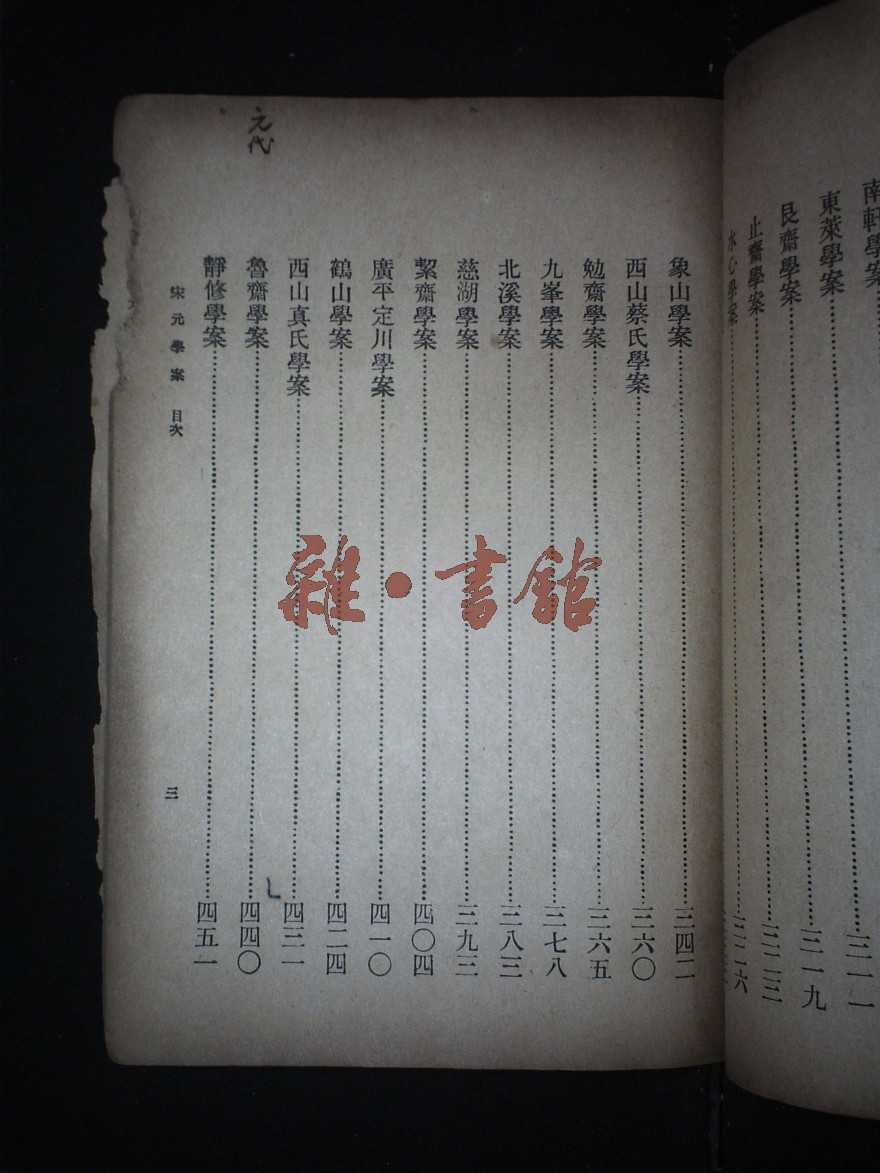 南軒學案……三一一
東萊學案……三一九
艮齋學案……三二三
止齋學案……三二六
水心學案……
象山學案……三四二
西山蔡氏學案……三六〇
勉齋學案……三六五
九峯學案……三七八
北溪學案……三八三
慈湖學案……三九三
絜齋學案……四〇四
廣平定川學案……四一〇
鶴山學案……四二四
西山真氏學案……四三一
元代
魯齋學案……四四〇
靜修學案……四五一
宋元學案 目次 三
雜·書館